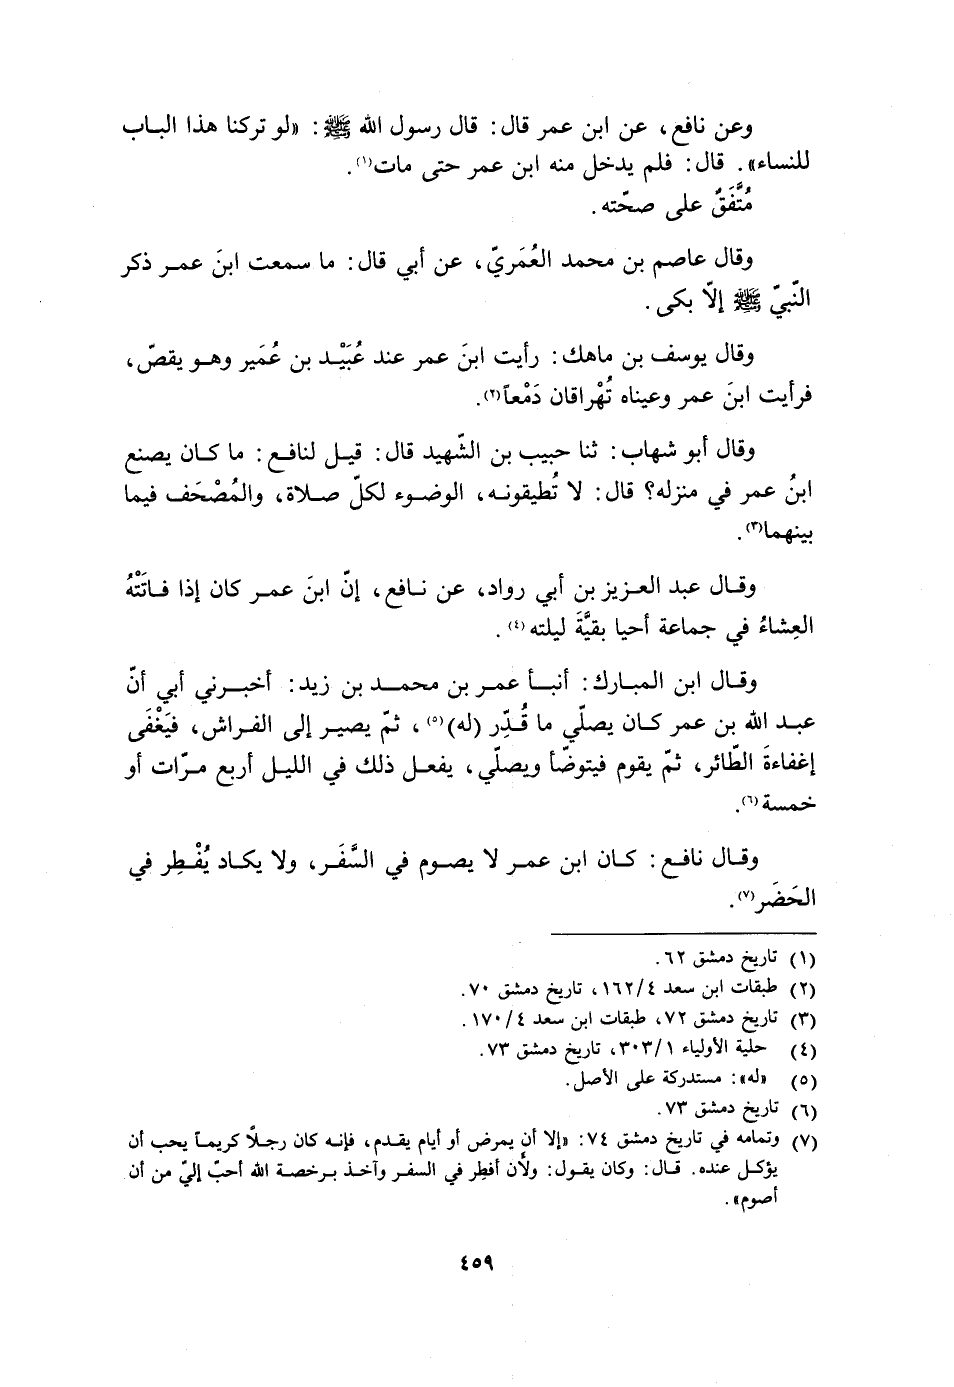 وعن نافع، عن ابن عمر قال: قال رسول الله ﷺ: «لو تركنا هذا الباب
للنساء». قال: فلم يدخل منه ابن عمر حتى مات(١).
مُتَّفَقٌ على صحّته.
وقال عاصم بن محمد العُمَريّ، عن أبي قال: ما سمعت ابنَ عمر ذكر
النّبيّ ﷺ إلّا بكى.
وقال يوسف بن ماهك: رأيت ابنَ عمر عند عُبَيْد بن عُمَير وهو يقصّ،
فرأيت ابنَ عمر وعيناه تُهْراقان دَمْعاً(٢).
وقال أبو شهاب: ثنا حبيب بن الشّهيد قال: قيل لنافع: ما كان يصنع
ابنُ عمر في منزله؟ قال: لا تُطيقونه، الوضوء لكلّ صلاة، والمُصْحَف فيما
بينهما(٣).
وقال عبد العزيز بن أبي رواد، عن نافع، إنّ ابنَ عمر كان إذا فاتَتْهُ
العِشاءُ في جماعة أحيا بقيَّةَ ليلته(٤).
وقال ابن المبارك: أنبأ عمر بن محمد بن زيد: أخبرني أبي أنّ
عبد الله بن عمر كان يصلّي ما قُدِّر (له)(٥)، ثمّ يصير إلى الفراش، فيَغْفَى
إغفاءةَ الطّائر، ثمّ يقوم فيتوضّأ ويصلّي، يفعل ذلك في الليل أربع مرّات أو
خمسة(٦).
وقال نافع: كان ابن عمر لا يصوم في السَّفَر، ولا يكاد يُفْطِر في
الحَضَر(٧).
(١) تاريخ دمشق ٦٢.
(٢) طبقات ابن سعد ١٦٢/٤، تاريخ دمشق ٧٠.
(٣) تاريخ دمشق ٧٢، طبقات ابن سعد ١٧٠/٤.
(٤) حلية الأولياء ٣٠٣/١، تاريخ دمشق ٧٣.
(٥) «له»: مستدركة على الأصل.
(٦) تاريخ دمشق ٧٣.
(٧) وتمامه في تاريخ دمشق ٧٤: «إلا أن يمرض أو أيام يقدم، فإنه كان رجلاً كريماً يحب أن
يؤكل عنده. قال: وكان يقول: ولأن أفطِر في السفر وآخذ برخصة الله أحبّ إليّ من أن
أصوم».
٤٥٩